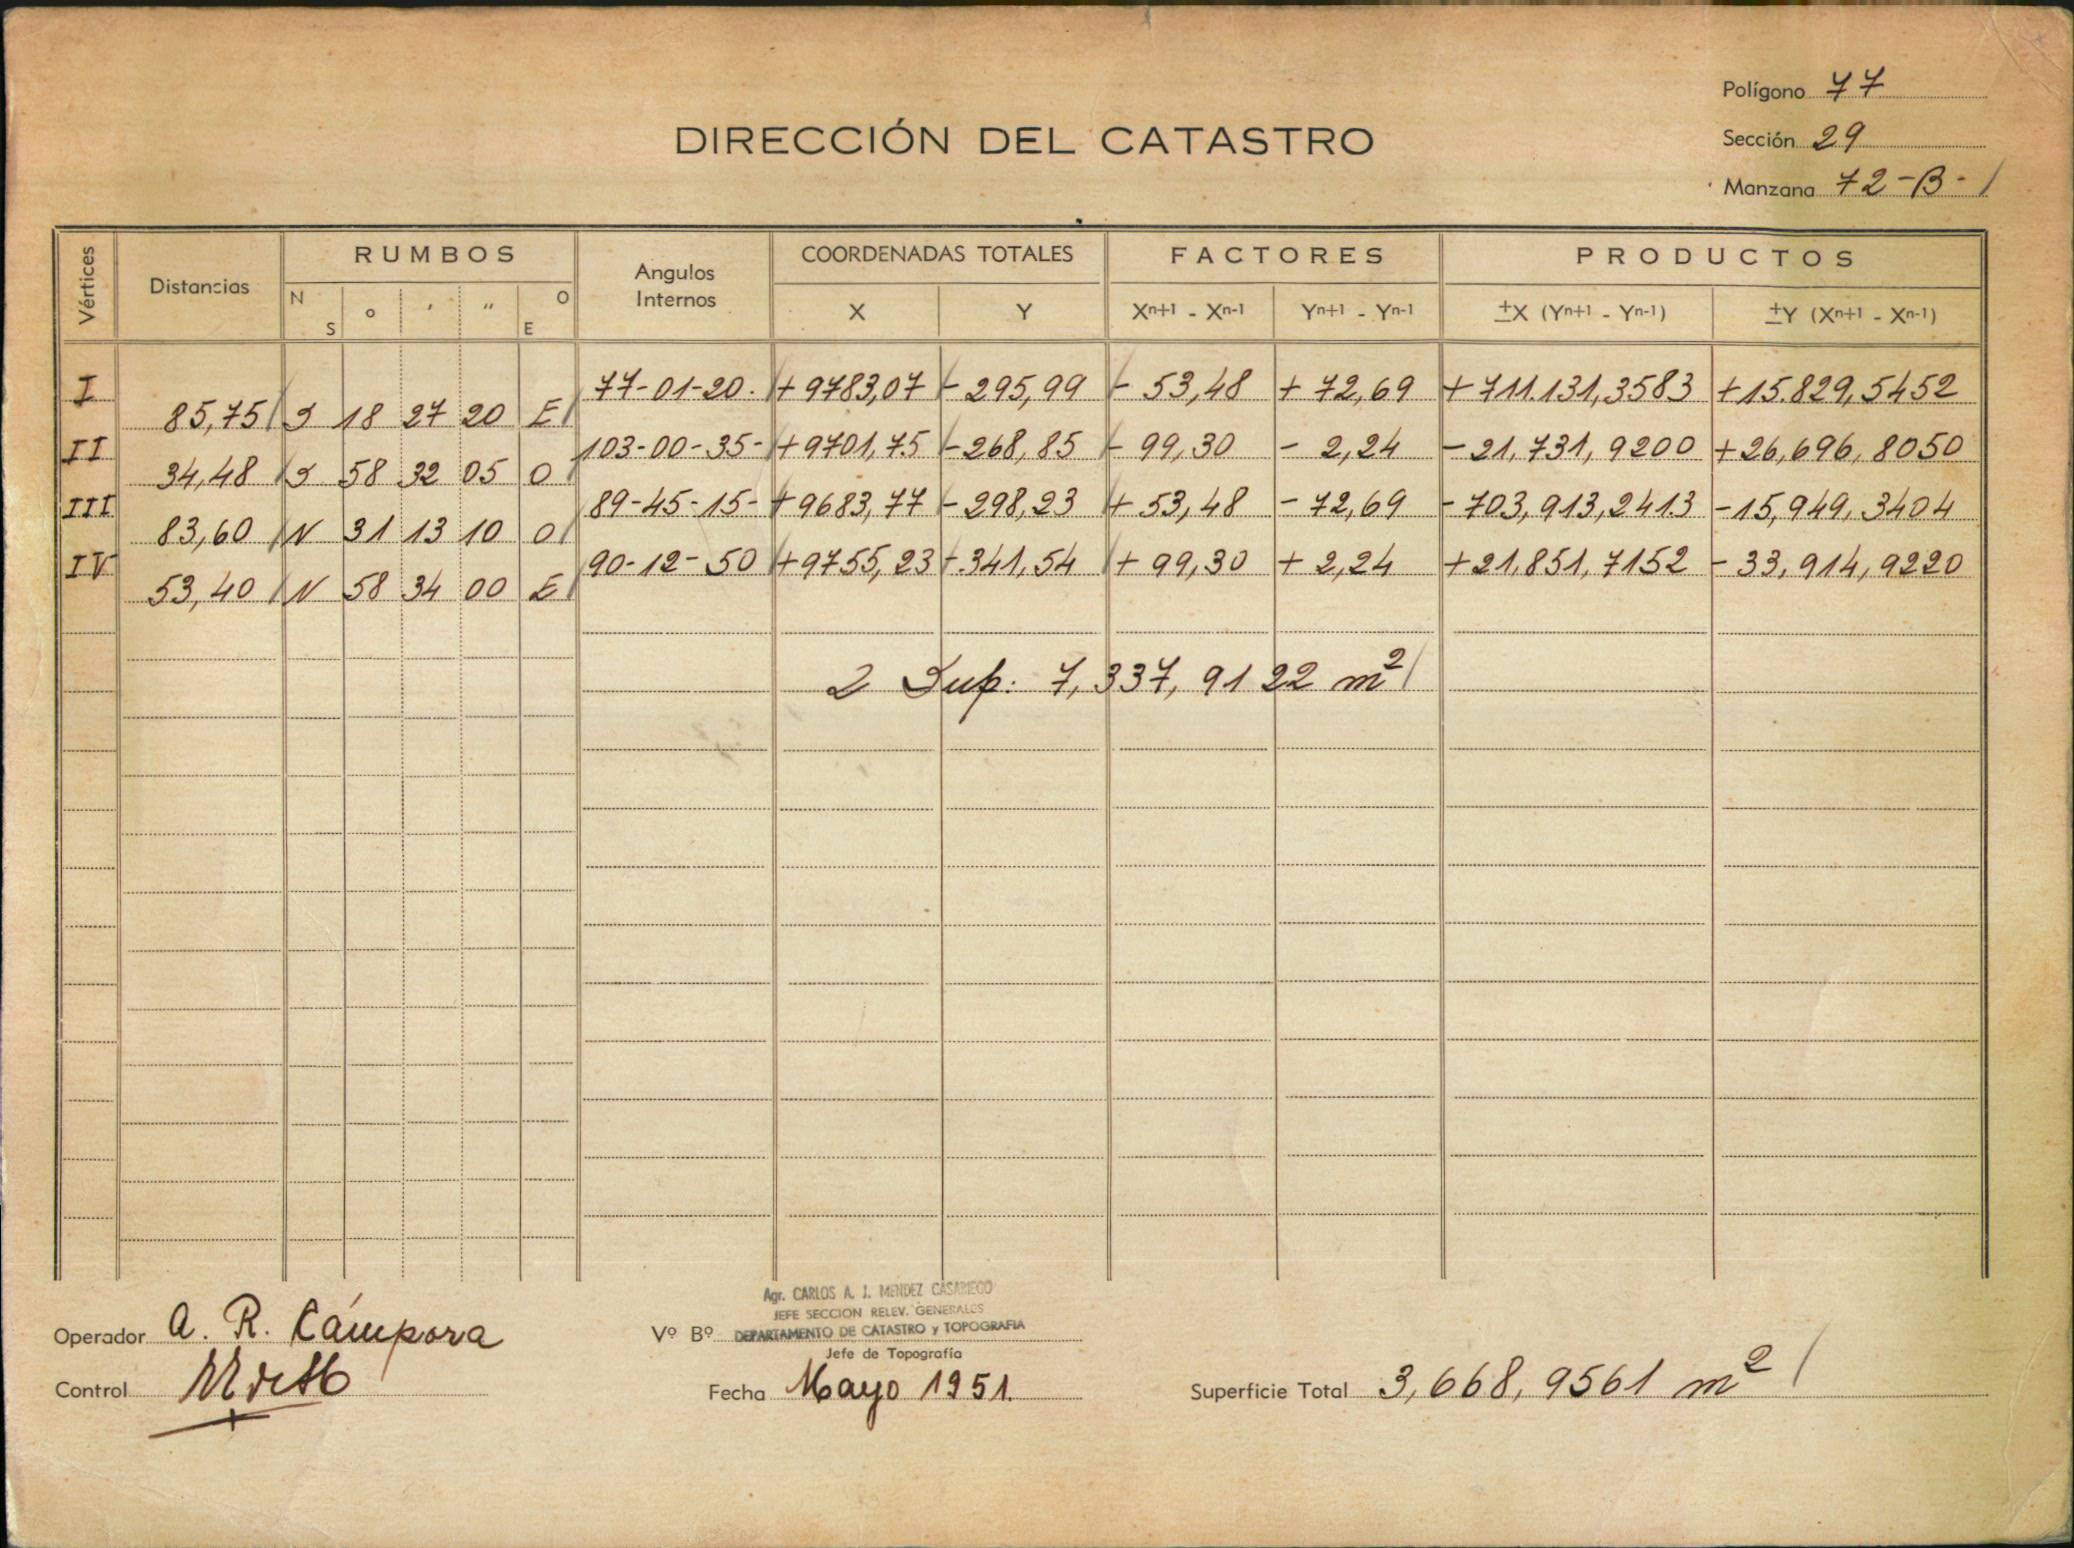 Polígono 77
DIRECCIÓN DEL CATASTRO
Sección 29
Manzana 72-B-
Vértices Distancias RUMBOS Angulos Internos COORDENADAS TOTALES FACTORES PRODUCTOS
N S o ' " E O X Y Xn+1 - Xn-1 Yn+1 - Yn-1 ±X (Yn+1 - Yn-1) ±Y (Xn+1 - Xn-1)
I 77-01-20. +9783,07 -295,99 - 53,48 + 72,69 +711.131,3583 +15.829,5452
85,75 S 18 27 20 E
II 103-00-35- +9701,75 -268,85 - 99,30 - 2,24 -21,731,9200 +26,696,8050
34,48 S 58 32 05 O
III 89-45-15- +9683,77 -298,23 + 53,48 - 72,69 -703,913,2413 -15,949,3404
83,60 N 31 13 10 O
IV 90-12-50 +9755,23 -341,54 + 99,30 + 2,24 +21,851,7152 - 33,914,9220
53,40 N 58 34 00 E
2 Sup: 7,337,9122 m2
Agr. CARLOS A. J. MENDEZ CASARIEGO
JEFE SECCION RELEV. GENERALES
Operador A. R. Cámpora Vº Bº DEPARTAMENTO DE CATASTRO y TOPOGRAFIA
Jefe de Topografía
Control Fecha Mayo 1951. Superficie Total 3,668,9561 m2